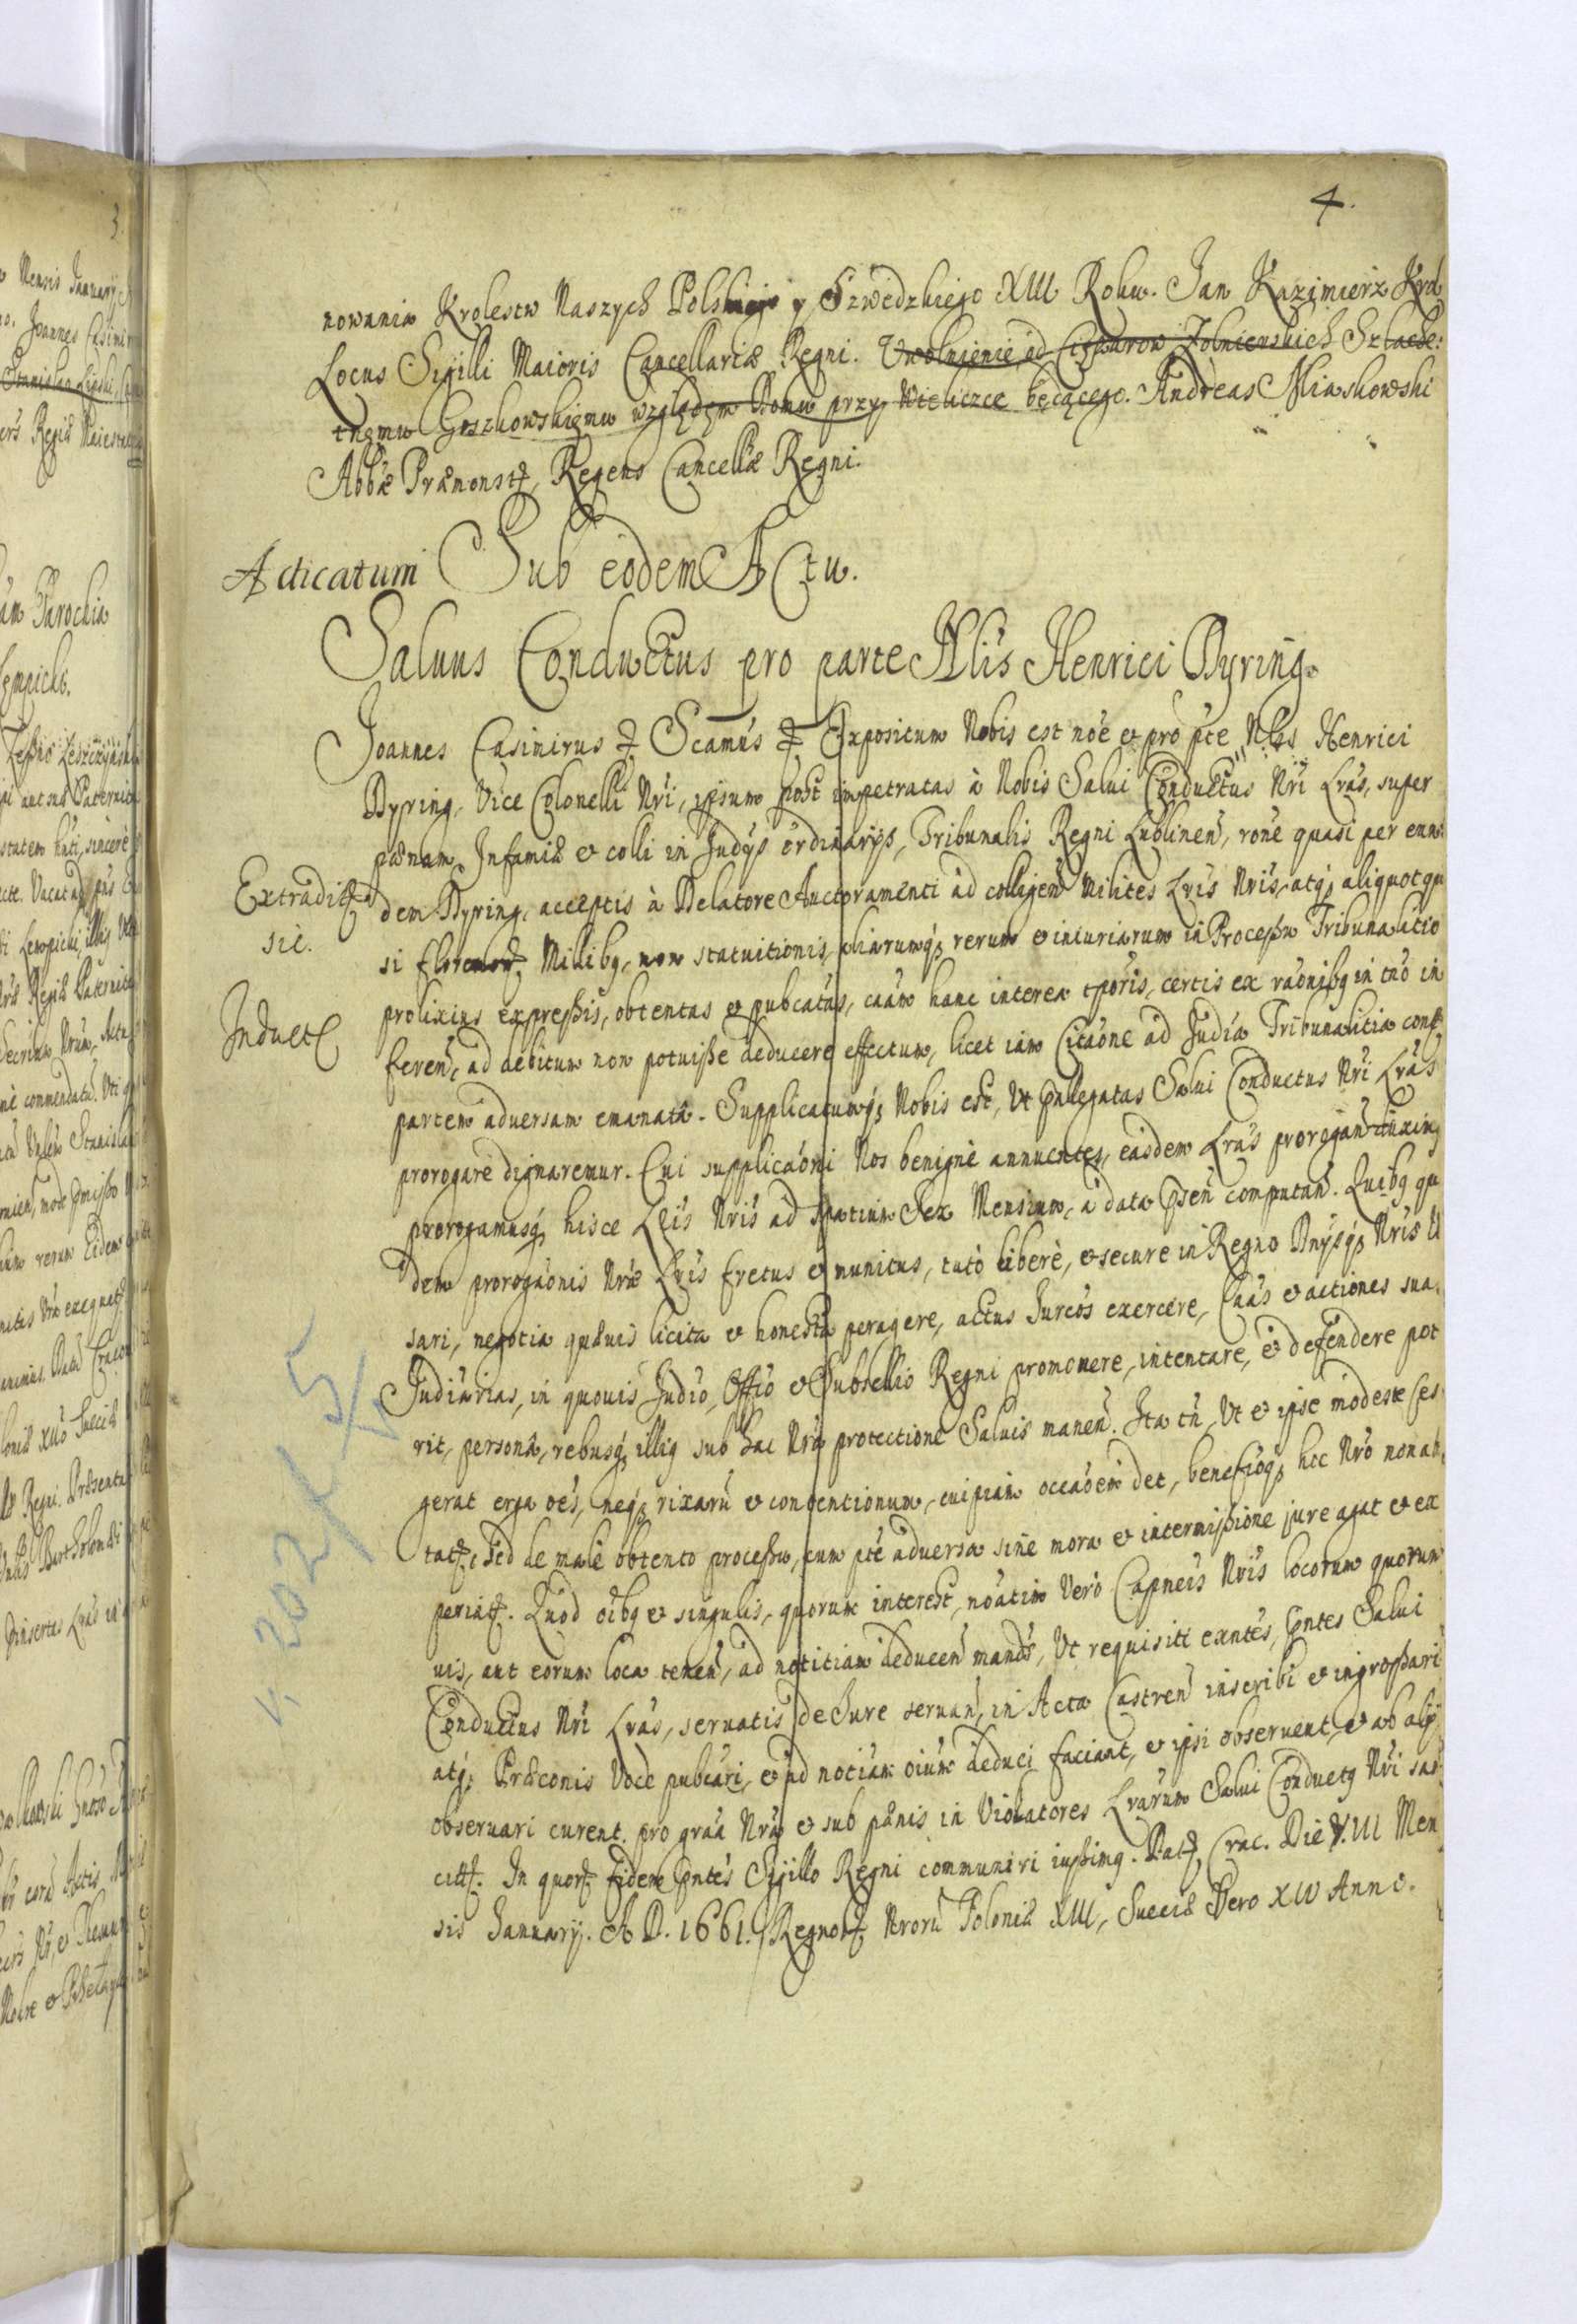 4.
nowania Krolestw Naszych Polskiego y Szwedzkiego XIII Roku. Jan Kazimierz Krol
Locus Sigilli Maioris Cancellariæ Regni. Uwolnienie od Ciężarow Zolnierskich Szlache:
tnęmu Goszkowskięmu względęm Domu przy Wieliczce bęcącego. Andreas Miaskowski
Abbæ Præmonst, Regens Cancellæ Regni.
Acticatum Sub eodem Actu.
Saluus Conductus pro parte Nlis Henrici Dyring.
Joannes Casimirus Scamus Expositum Nobis est nõe et pro pte Nlis Henrici
Dyring, Vice Colonelli Nri, ipsum post impetratas à Nobis Salui Conductus Nri Lras, super
pænam Infamiæ et colli in Judijs ordinarijs, Tribunalis Regni Lublinen, rone quasi per eun
Extradit
dem Dyring, acceptis à Delatore Auctoramenti ad colligen Milites Lris Nris, atq aliquot qu
sie.
si floreno Millibq, non statuitionis, aliarumq rerum et iniuriarum in Processu Tribunalitio
prolixius expressis, obtentas et pubcatas, caam hanc interea tporis, certis ex raonibq in in
Induct
feren, ad debitum non potuisse deducere effectum, licet iam Citaone ad Judia Tribunalitia
partem aduersam emanata. Supplicatumq Nobis est, Ut pallegatas Salui Conductus Nri Lras
prorogare dignaremur. Cui supplicaoni Nos benigne annuentes, easdem Lras prorogan duximq
prorogamusq hisce Lris Nris ad spatium Sex Mensium, à data psen computan. Quibq qu
dem prorogaonis Nræ Lris fretus et munitus, tutò liberè, et secure in Regno Dnijsq Nris
sari, negotia quæuis licita et honesta peragere, actus Iureos exercere, Caas et actiones sua
Judiarias, in quouis Judio, Offio et Subsellio Regni promouere, intentare, et defendere pot
rit, personâ, rebusq illiq sub hac Nra protectione Saluis manen. Ita tn, Ut et ipse modeste ses
gerat erga oes, neqз rixaru et contentionum, cuipiam occaoem det, beneficioq hoc Nro non ab
tat, sed de male obtento processu, cum pte aduersa sine mora et intermissione jure agat et ex
periat. Quod oibq et singulis, quorum interest, noatim Verò Capneis Nris locorum quorum
uis, aut eorum loca tenen, ad notitiam deducen mands, Ut requisiti exntes, pntes Salui
Conductus Nri Lras, seruatis de Iure seruan, in Acta Castren inscribi et ingrossari
atq Præconis Voce pubcari, et ad notiam oium deduci faciant, et ipsi obseruent, et ab alij
obseruari curent, pro graa Nra et sub pænis in Violatores Lrarum Salui Conductq Nri san
citt. In quor fidem pntes Sigillo Regni communiri iussimq. Dat, Crac. Die VIII Men
sis January. A D. 1661. Regnor Nroru Poloniæ XIII, Sueciæ Vero XIV Anno.